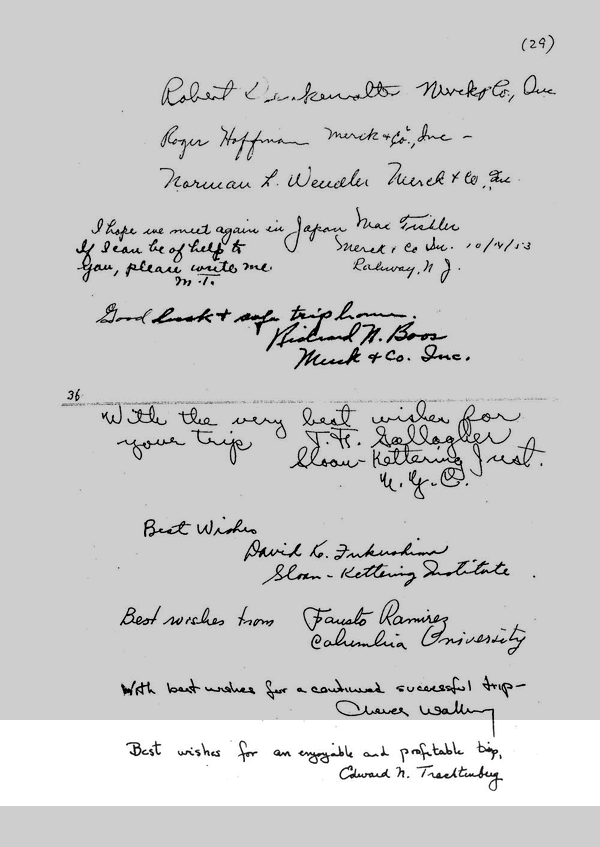 (29)
Robert Denkewalter Merck & Co., Inc
Roger Hoffman Merck & Co., Inc –
Norman L. Wendler Merck & Co., Inc.
I hope we meet again in Japan Max Tishler
If I can be of help to Merck & Co Inc. 10/14/53
you, please write me Rahway, N J.
M.T.
Good luck & safe trip home.
Richard N. Boos
Merck & Co. Inc.
36
With the very best wishes for
your trip T.F. Gallagher
Sloan-Kettering Inst.
N.Y.C.
Best Wishes
David K. Fukushima
Sloan-Kettering Institute .
Best wishes from Fausto Ramirez
Columbia University
With best wishes for a continued successful trip–
Cheves Walling
Best wishes for an enjoyable and profitable trip,
Edward N. Trachtenberg